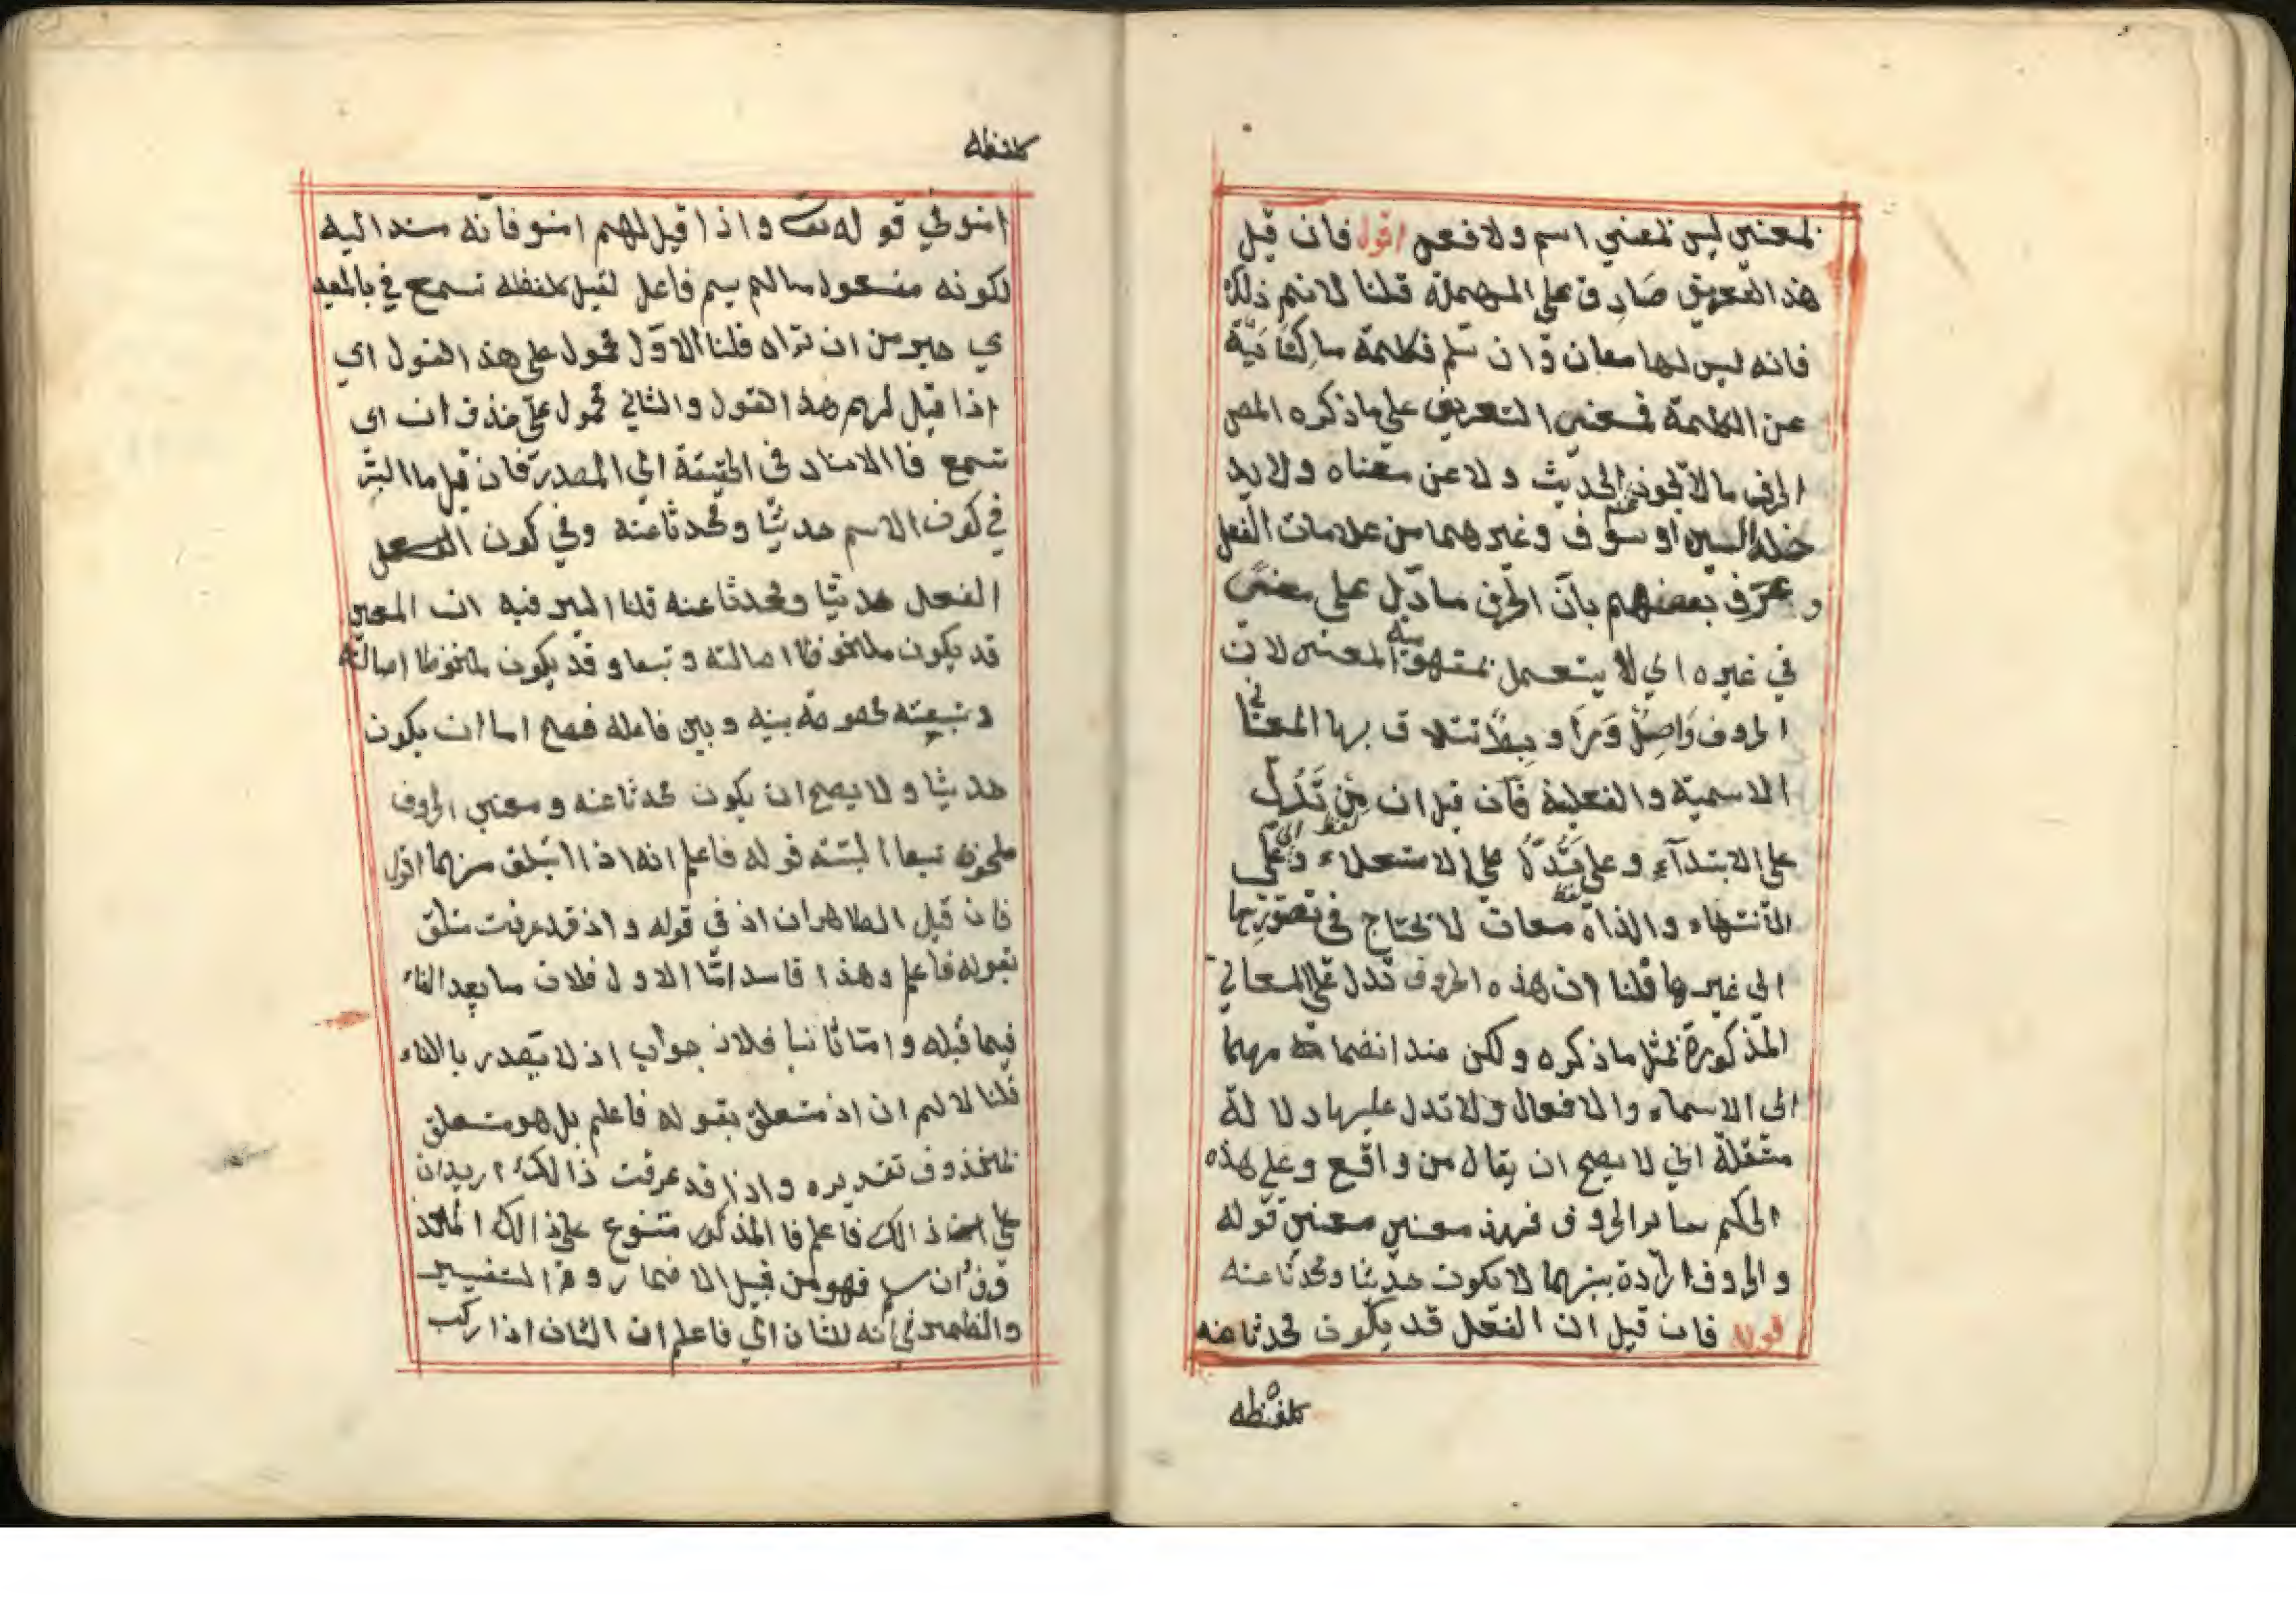 لمعنى ليس لمعنى اسم ولا فعل اقول فان قيل
هذا التعريف صادق على المهملة قلنا لا نم ذلك
فانه ليس لها معان وان سلم فكلمة ما كناية
عن الكلمة فمعنى التعريف على ما ذكره المص
الحرف ما لا الحديث ولا عن معناه ولا يد
خله السين او سوف وغيرهما من علامات الفعل
وعرف بعضهم بان الحرف ما دل على معنى
في غيره اي لا يستعمل المعنى لان
الحروف وبها المعاني
الاسمية والفعلية فان قيل ان من تدل
على الابتدآء وعلى على الاستعلاء
الانتهاء والذاه معان لا تحتاج في تصورها
الى غيرها قلنا ان هذه الحروف تدل على المعاني
المذكورة بمثل ما ذكره ولكن عند انضمامه مهما
الى الاسماء والافعال ولا تدل عليها دلالة
مستقلة اي لا يصح ان يقال من واقع وعلى هذه
الحكم ساير الحروف فهذ معنى معنى قوله
والحروف اراده بينهما لا يكون حديثا ومحدثا عنه
قوله فان قيل ان الفعل قد يكون محدثا عنه
كلفظه
كلفظه
امنو في قوله تعـ واذا قيل لهم امنو فانه مسند اليه
لكونه مفعول مالم يسم فاعل لقيل كلفظه تسمع في بالمعيد
ي خير من ان تراه قلنا الاول محمول على هذ القول اي
اذا قيل لهم هذ القول والثاني محمول على حذف ان اي
تسمع فا الاسناد في الحقيقة الى المصدر فان قيل ما السّر
في كون الاسم حديثا ومحدثا عنه وفي كون الفعل
الفعل حديثا ومحدثا عنه قلنا السر فيه ان المعنى
قد يكون ملحوظا اصالته وتبعا وقد يكون ملحوظا اصالته
وتبعيته بينه وبين فاعله فصح اما ان يكون
حديثا ولا يصح ان يكون محدثا عنه ومعنى الحروف
تبعا البتته قوله فاعلم انه اذا منهما اقول
فان قيل الظاهر ان اذ في قوله واذ قد عرفت متعلق
بقوله فاعلم وهذا فاسد امّا الاول فلان ما بعد الفاء
فيما قبله وامّا ثانيا فلان جواب اذ لا يصدر بالفاء
قلنا لا نسلم ان اذ متعلق بقوله فاعلم بل هو متعلق
بمحذوف تقديره واذا قد عرفت ذالك اريدان
على ذالك فاعلم فا المذكور متنوع على ذالك
فهو من قبيل الاضمار والتفسير
والضمير في انه للشان اي فاعلم ان الشان اذا ركب